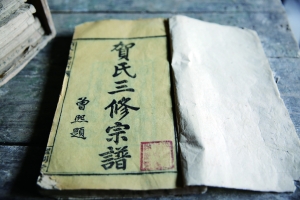 賀氏三修宗譜
曾熙題